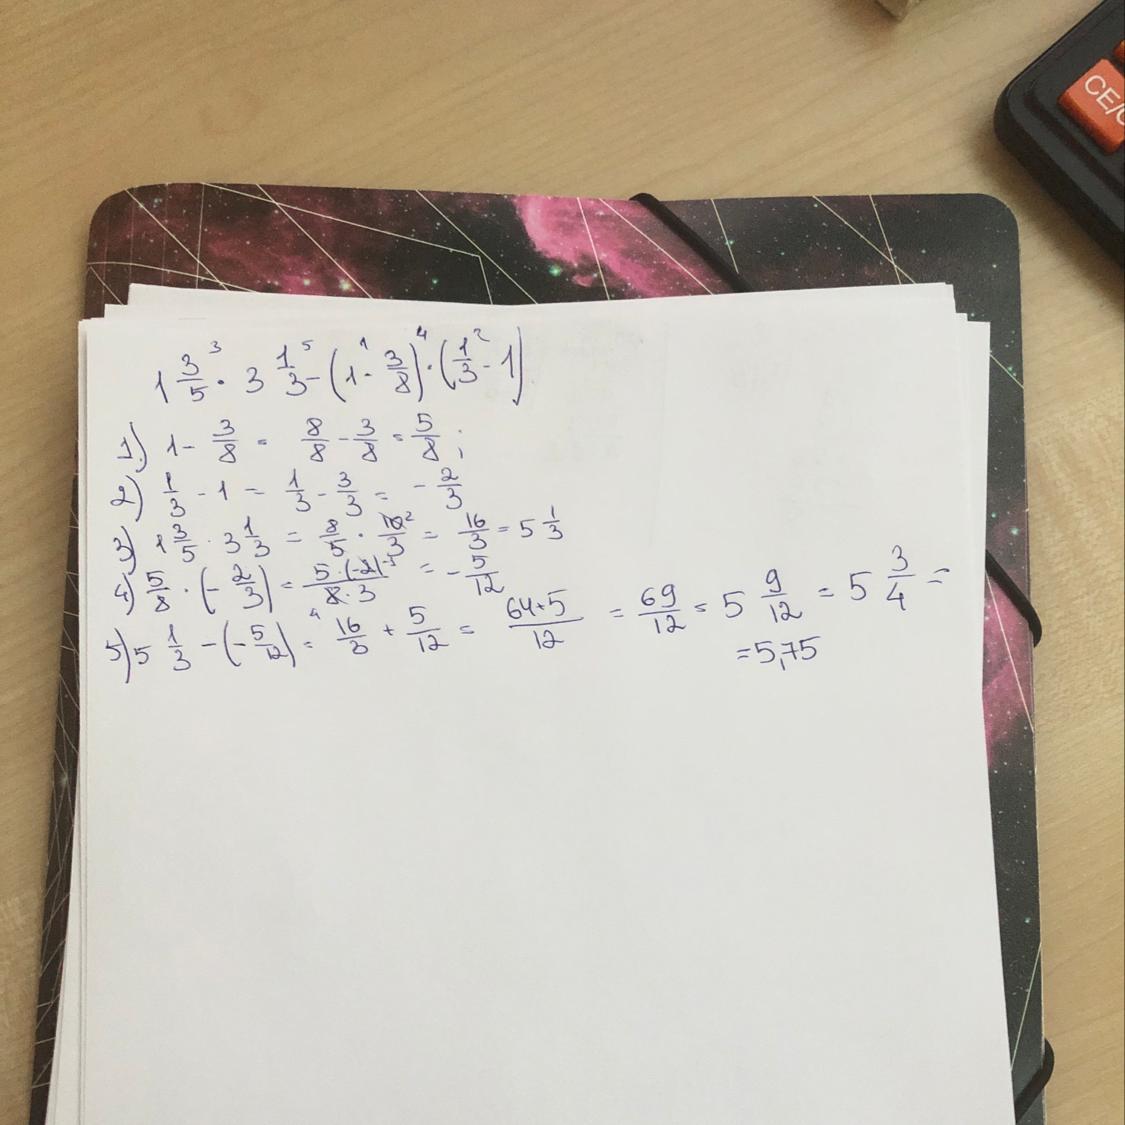 CE/C
1 3/5 ³ · 3 1/3 ⁵ - (1 ¹- 3/8) ⁴· (1/3 ²- 1)
1) 1 - 3/8 = 8/8 - 3/8 = 5/8 ;
2) 1/3 - 1 = 1/3 - 3/3 = - 2/3
3) 1 3/5 · 3 1/3 = 8/5 · 10²/3 = 16/3 = 5 1/3
4) 5/8 · (- 2/3) = 5·(-2)⁻¹/8₄·3 = - 5/12
5) 5 1/3 - (- 5/12) = ⁴16/3 + 5/12 = 64+5/12 = 69/12 = 5 9/12 = 5 3/4 =
=5,75